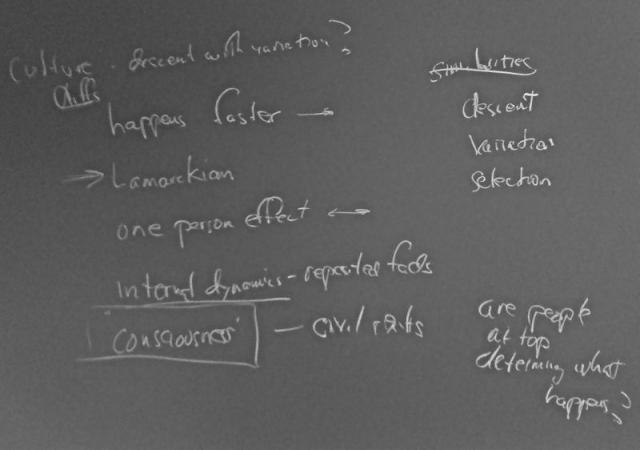 culture - descent with variation?
similarities
diffs
descent
happens faster →
variation
→ Lamarckian
selection
one person effect ↔
internal dynamics - repeated fads
"consciousness" — civil rights
are people
at top
determing what
happens?